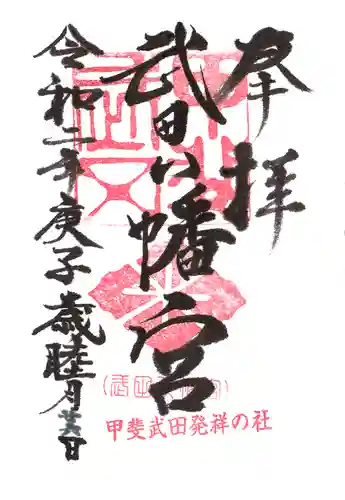 奉拝
武田八幡宮
令和二年庚子歳睦月
日
甲斐武田発祥の社